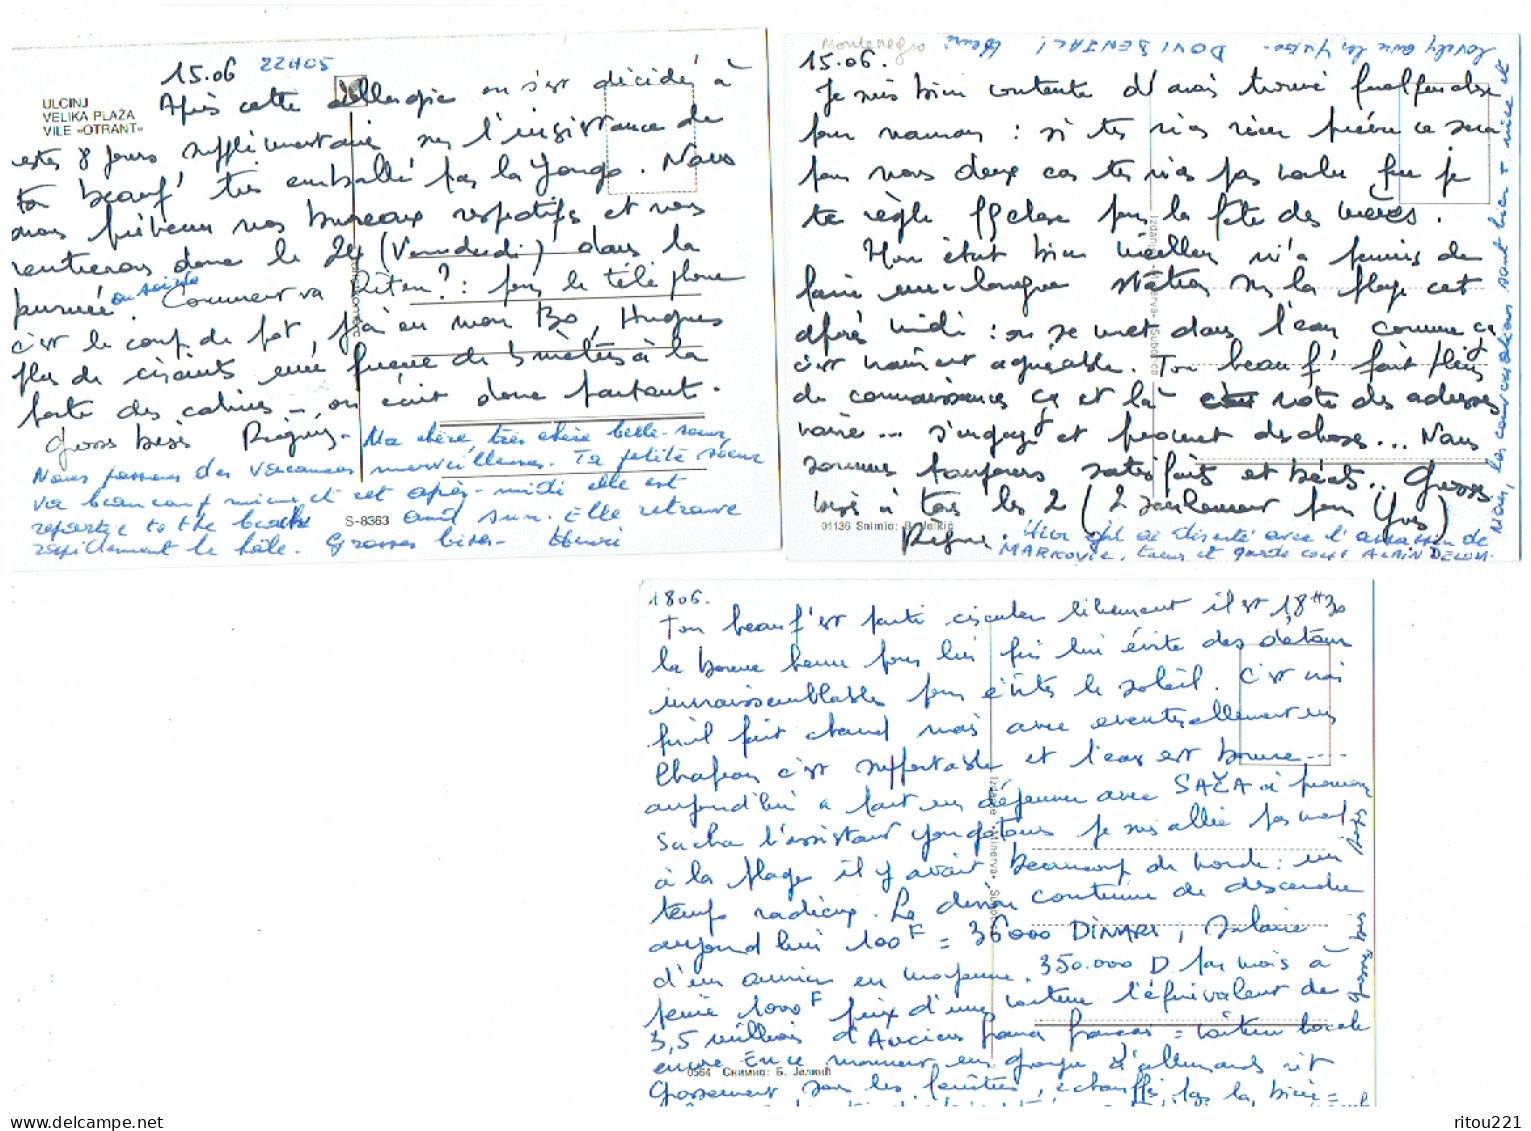 15.06 22H05
ULCINJ
VELIKA PLAŽA
VILE »OTRANT«
Après cette allergie on s'est décidé à
8 jours supplémentaires sur l'insistance de
ton beauf' très emballé par la Yougo. Nous
nos bureaux respectifs et nous
rentrerons donc le 24 (Vendredi) dans la
journée ou soirée. Comment va Titou? : pour le téléphone
c'est le coup de pot, j'ai eu mon Bo, Hugues
plus de circuits une queue de 5 mètres à la
porte des cabines -, on écrit donc partout.
Gross bisis Régine -
Ma chère, très chère belle-sœur,
Nous passons des vacances merveilleuses. Ta petite sœur
va beaucoup mieux et cet après-midi elle est
repartie to the beach and sun. Elle retrouve
rapidement le hâle. Grosses bises. Henri
S-8363
Montenegro
lovely avec les Yugo. DOVIDENJAC! Henri
15.06.
Je suis bien contente d'avoir trouvé quelque chose
pour maman : si tu n'as rien prévu ce sera
pour nous deux cas tu n'as pas voulu que je
te règle qqchose pour la fête des mères.
Mon état bien meilleur m'a permis de
faire une longue station sur la plage cet
après midi : on se met dans l'eau comme ça
c'est vraiment agréable. Ton beauf' fait plein
de connaissances ça et là note des adresses
voire ... s'engage et promet des choses ... Nous
sommes toujours satisfaits et béats.. Gross
bisis à tous les 2 (2 seulement pour Yvs)
Régine.
01136 Snimio: B. Jelkić
Hier ai discuté avec l'assassin de
MARKOVIC, tueur et garde corps ALAIN DELON.
Non, les conversations sont bien + nice et
Izdanje »Minerva« Subotica
1806.
Ton beauf' est parti circuler librement il est 18H30
la bonne heure pour lui qui lui évite des détours
invraisemblables pour éviter le soleil. C'est vrai
qu'il fait chaud mais avec éventuellement un
chapeau c'est supportable et l'eau est bonne ----
aujourd'hui a fait un déjeuner avec SAŽA à prononcer
Sacha l'assistant yougotours je suis allée pas mal
à la plage il y avait beaucoup de monde : un
temps radieux. Le dinar continue de descendre
aujourd'hui 100F = 36000 DINARS, salaire
d'un ouvrier en moyenne. 350.000 D par mois à
peine 1000F prix d'une voiture l'équivalent de
3,5 millions d'Anciens francs français = voiture locale
encore. En ce moment un groupe d'allemands rit
grossement sous les fenêtres, échauffés par la bière =
0564 Снимио: Б. Јелкић
Izdanje »Minerva« Subotica
ritou221